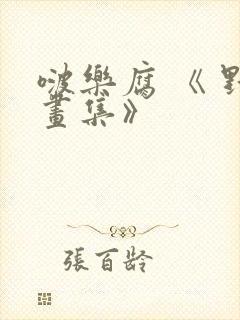 啵樂腐《野
畫集》
張百齡